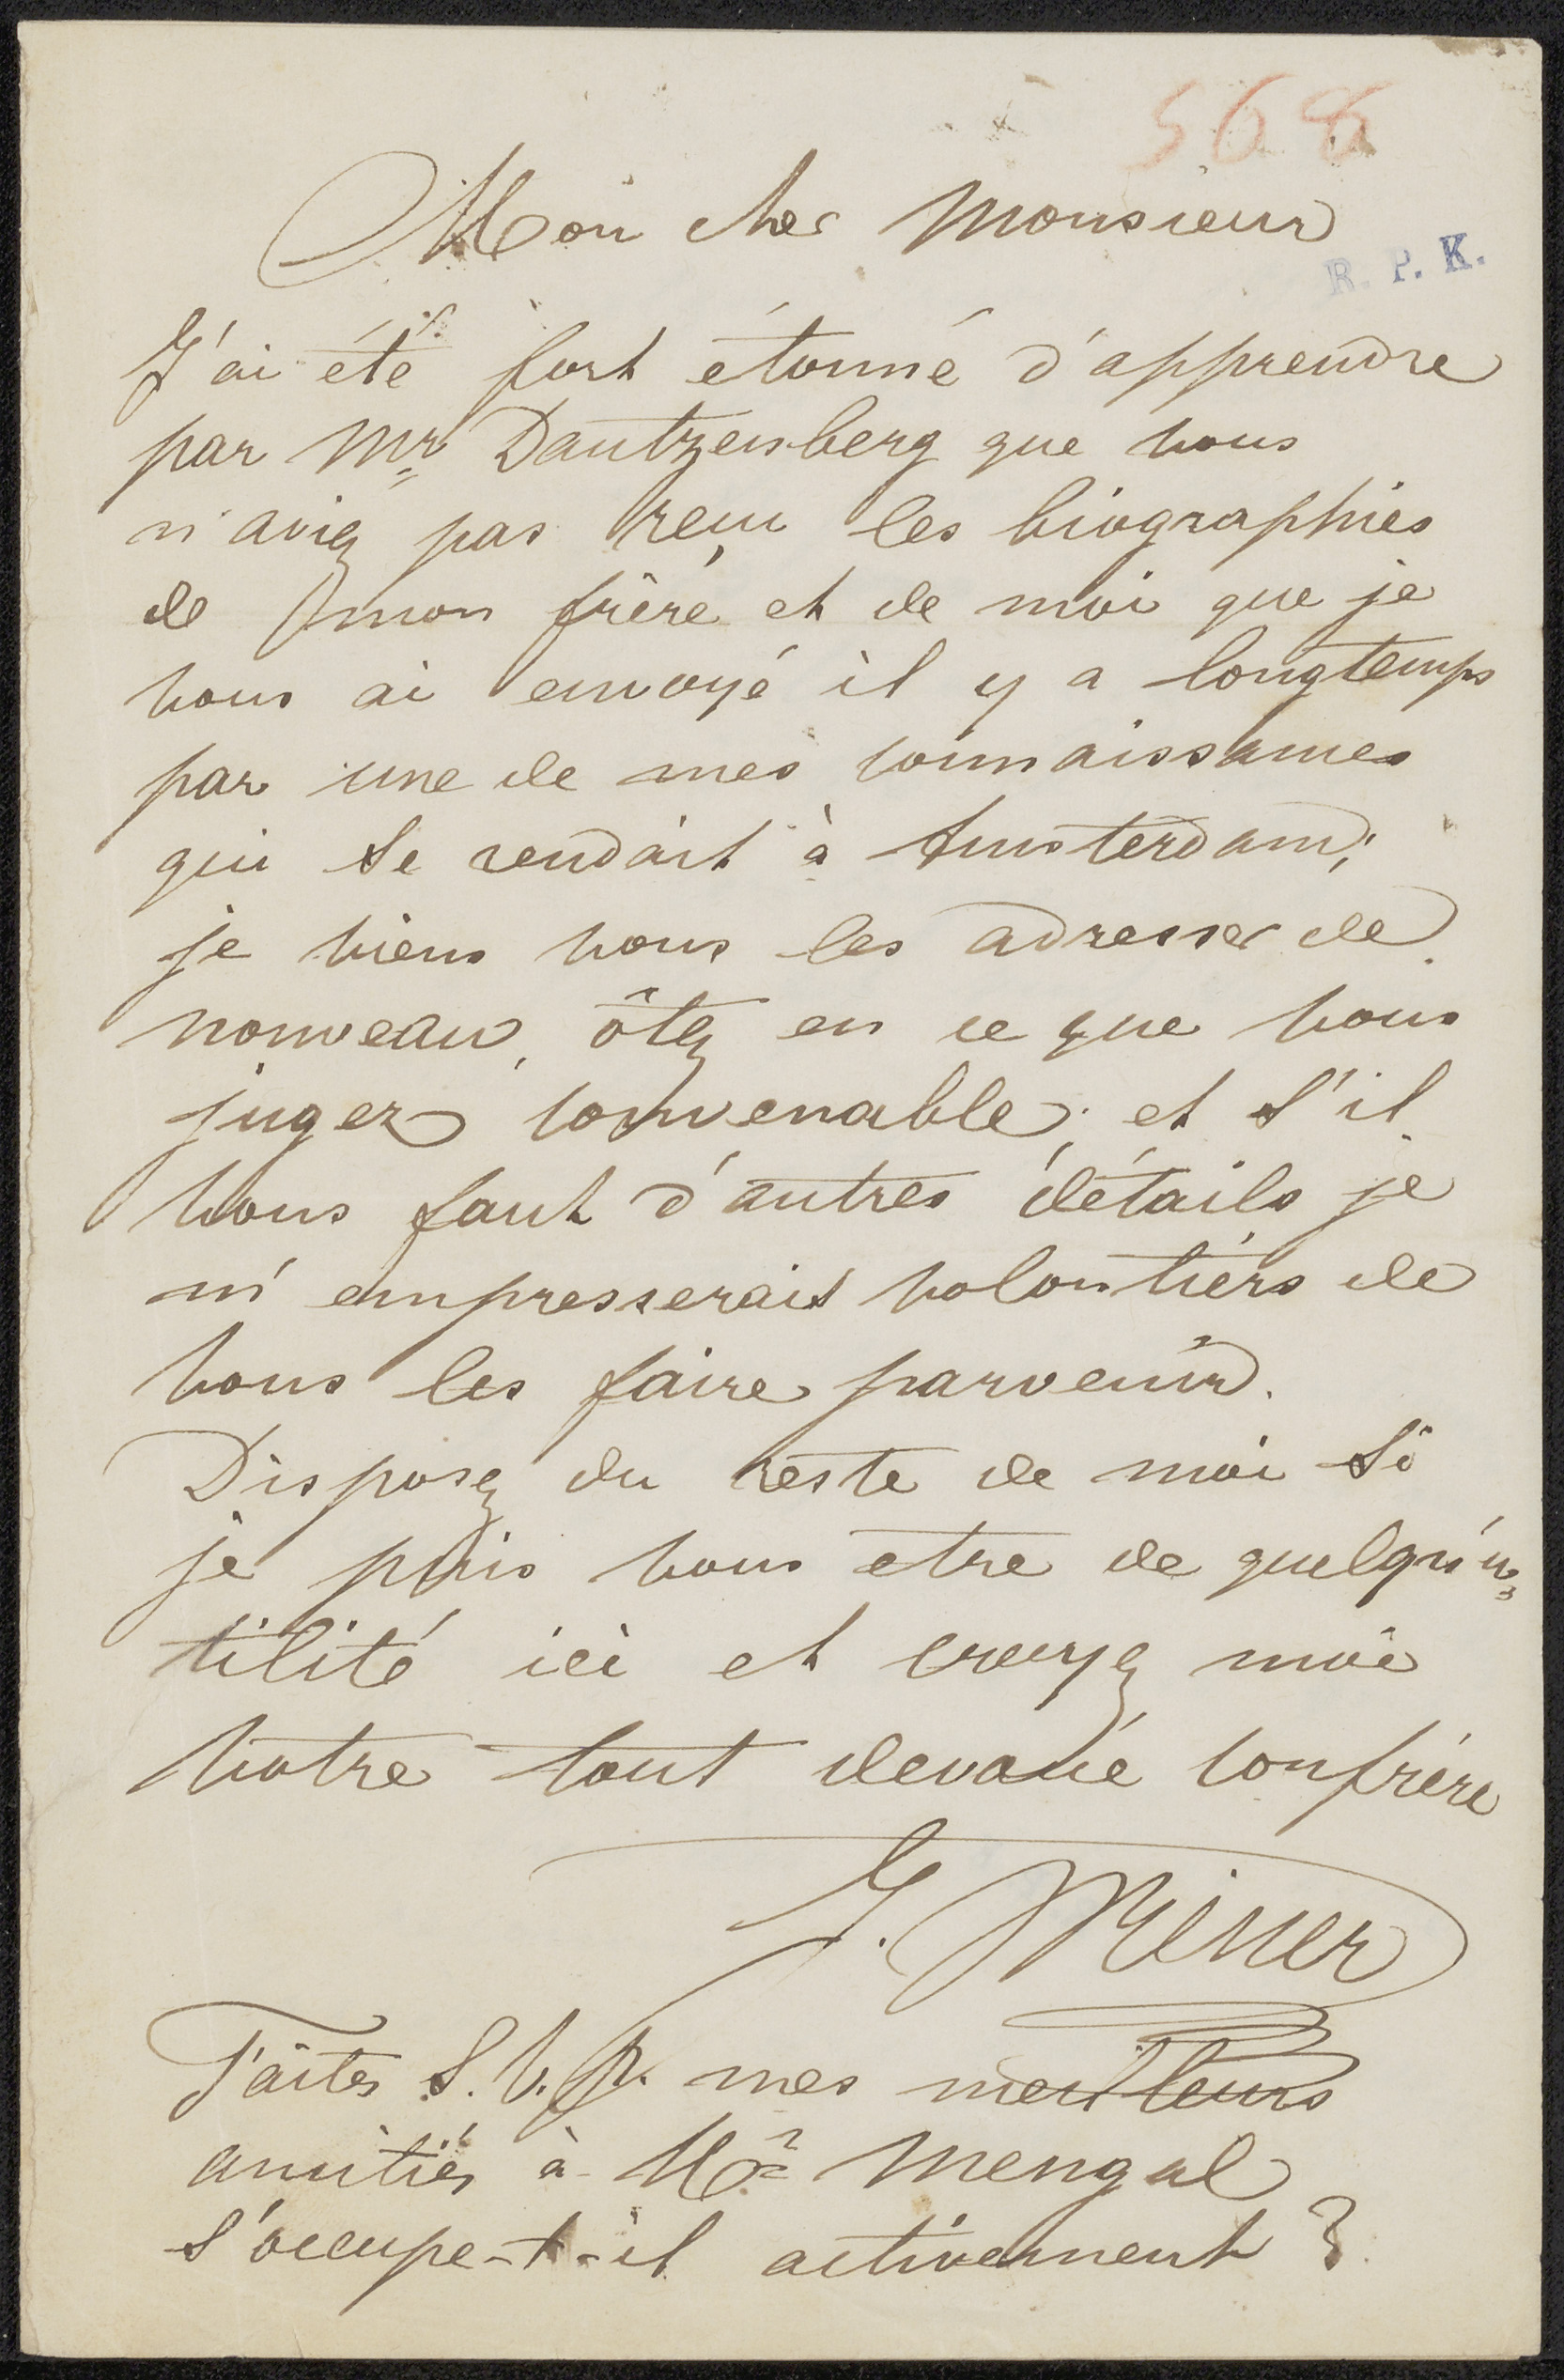 568
Mon cher Monsieur
R. P. K.
J'ai été fort étonné d'apprendre
par Mr Dautzenberg que vous
n'aviez pas reçu les biographies
de mon frère et de moi que je
vous ai envoyé il y a longtemps
par une de mes connaissances
qui se rendait à Amsterdam;
je viens vous les adresser de
nouveau, ôtez en ce que vous
jugez convenable; et s'il
vous faut d'autres détails je
m'empresserais volontiers de
vous les faire parvenir.
Disposez du reste de moi si
je puis vous etre de quelqu'u,
tilité ici et croyez moi
votre tout devoué confrère
Faites S. V. P. mes meilleurs
amitiés à Mr Mengal
s'occupe-t-il activement?